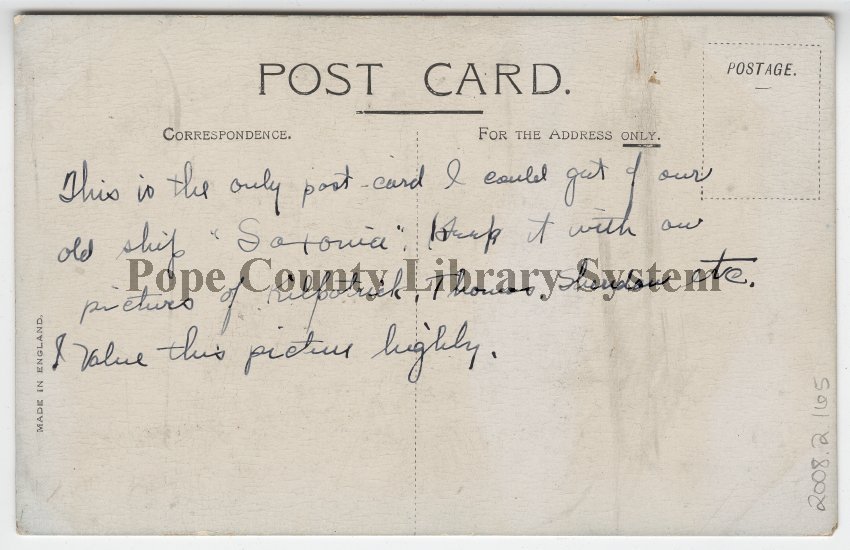 POST CARD.
POSTAGE.
CORRESPONDENCE.
FOR THE ADDRESS ONLY.
This is the only post-card I could get of our
old ship "Saxonia". Keep it with our
Pope County Library System
pictures of Kilpatrick, Thomas, Sheridan etc.
I value this picture highly.
MADE IN ENGLAND.
2008.2.165